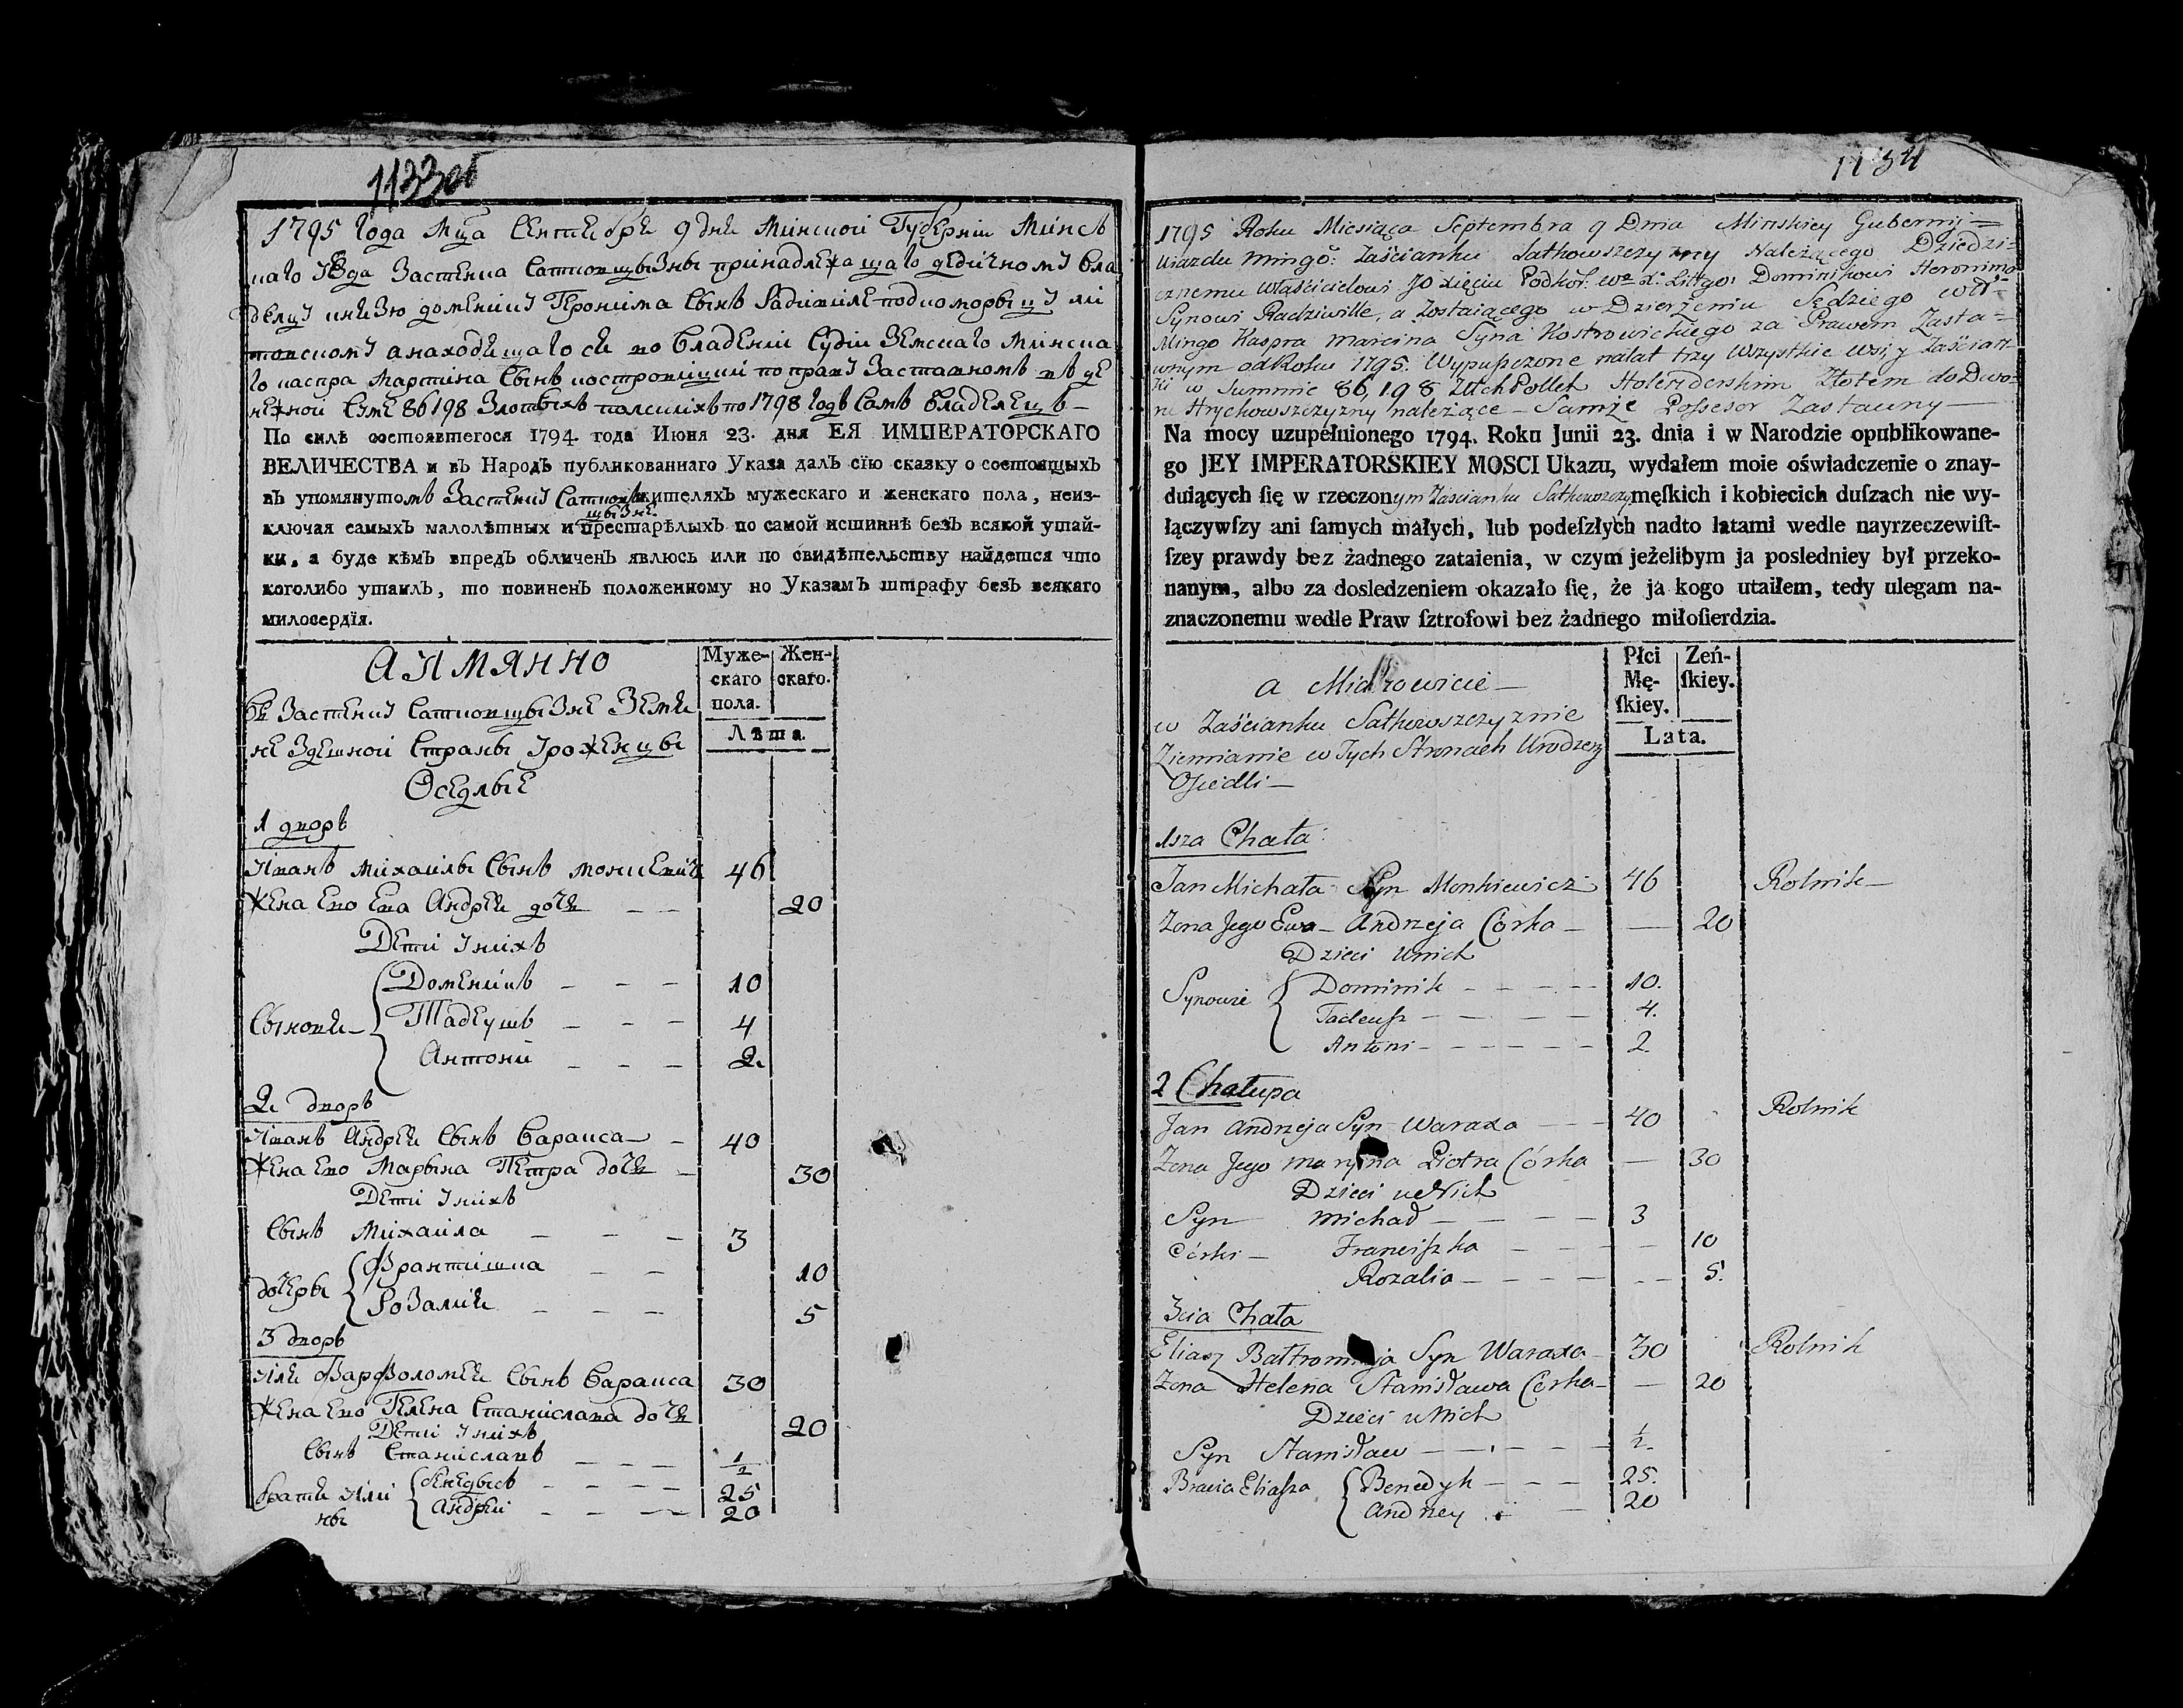 1133 об
1795 года Мца Сентебрея 9 дня Минской Губерніи Минсъ
наго Уезда Застенка Сатковщызны принадлежащаго дедичному вла
делцу князю доменику Героніма сыну Радивиле подкоморыцу ли
товскому анаходящаго ся во владеніи Судіи Земскаго Минска
го каспра Мартина сынъ костровицкій по праву Заставномъ въ де
нежной суме 86198 Злотыхъ полскихъ по 1798 годъ самъ владелецъ —
По силѣ состоявшегося 1794. года Июня 23. дня ЕЯ ИМПЕРАТОРСКАГО
ВЕЛИЧЕСТВА и въ Народъ публикованнаго Указа далъ сїю сказку о состоящыхъ
въ упомянутомъ Застенку Сатков жителяхъ мужескаго и женскаго пола, неиз-
щызне
ключая самыхъ малолѣтных и престарѣлыхъ по самой истиннѣ безъ всякой утай-
ки, а буде кѣмъ впредъ обличенъ явлюсь или по свидѣтельству найдется что
коголибо утаилъ, то повиненъ положенному по Указамъ штрафу безъ всякаго
милосердїя.
А ИМЯННО
Муже-
скаго
пола.
Жен-
скаго.
Лѣта.
въ Застенку Сатковщызне Земя
не Здешной Страны Уроженцы
Оседлые
1 дворъ
Иванъ Михаилы Сынъ Монкевичъ 46
Жена Ево Ева Андрея дочь — — 20
Дети Унихъ
Сыновя — Доменикъ — — — 10
Тадеушъ — — — 4
Антони — — — 2.
2 дворъ
Иванъ Андрея Сынъ Варакса — — 40
Жена Ево Марына Петра дочь — 30
Дети Унихъ
Сынъ Михаила — — — 3
дочеры Франтишка — — 10
Розалия — — — 5
3 дворъ
Иля Фарфоломея Сынъ Варакса 30
Жена Ево Гелена Станислава дочь 20
Дети Унихъ
Сынъ Станиславъ — — — ½
братя Или Бенедыктъ — — — — 25
ны Андрей — — — — 20
1134
1795 Roku Miesiąca Septembra 9 Dnia Minskiey Gubernij =
Uiazdu Mingo: Zaścianku Satkowszczyzny Należącego Dziedzi=
cznemu Właścicielowi JO xięciu Podkoł: Wo X: Littgo: Dominikowi Heronima
Synowi Radziwille, a Zostaiącego w Dzierżeniu Sędziego
Mingo Kaspra Marcina Syna Kostrowickiego za Prawem Zasta=
wnym od Roku 1795. Wypuszczone nalat trzy Wszystkie Wsi, y Zaścian=
ki w Summie 86,198 Zltch Pollch Holenderskim Złotem do Dwo=
ru Hrychowszczyzny należące — Samże Possesor Zastawny —
Na mocy uzupełnionego 1794. Roku Junii 23. dnia i w Narodzie opublikowane-
go JEY IMPERATORSKIEY MOSCI Ukazu, wydałem moie oświadczenie o znay-
duiących ſię w rzeczonym Zascianku Satkowszczy męſkich i kobiecich duſzach nie wy-
łączywſzy ani ſamych małych, lub podeſzłych nadto latami wedle nayrzeczewiſt-
ſzey prawdy bez żadnego zataienia, w czym jeżelibym ja posledniey był przeko-
nanym, albo za dosledzeniem okazało ſię, że ja kogo utaiłem, tedy ulegam na-
znaczonemu wedle Praw ſztrofowi bez żadnego miłoſierdzia.
a Mianowicie —
Płci
Mę-
ſkiey.
Zeń-
ſkiey.
Lata.
w Zaścianku Satkowszczyznie
Ziemianie w Tych Stronach Urodzeni
Osiedli —
1sza Chata:
Jan Michała Syn Monkiewicz 46 Rolnik —
Zona Jego Ewa — Andrzeja Córka — — 20
Dzieci Unich
Synowie Dominik — — — — 10.
Tadeusz — — — — 4.
Antoni — — — — — 2.
2 Chałupa
Jan Andrzeja Syn Waraxa — — 40 Rolnik
Zona Jego Maryna Piotra Córka — 30
Dzieci u Nich
Syn Michał — — — — 3
Córki — Franciszka — — — — 10
Rozalia — — — — — — 5.
3cia Chata
Eliasz Bałtromieja Syn Waraxa — 30 Rolnik
Zona Helena Stanisława Corka — — 20
Dzieci u Nich
Syn Stanisław — — — — — ½.
Bracia Eliasza Benedyk — — — 25.
Andrzey — — 20